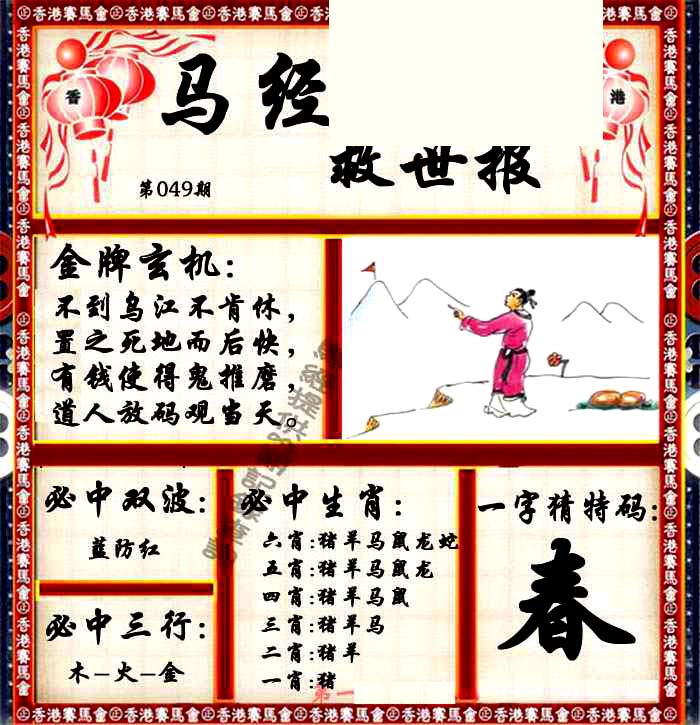 香港賽馬會
香
马经
港
救世报
第049期
金牌玄机:
不到乌江不肯休,
置之死地而后快,
有钱使得鬼推磨,
道人放码观当天。
必中双波:
蓝防红
必中三行:
木-火-金
必中生肖:
六肖:猪羊马鼠龙蛇
五肖:猪羊马鼠龙
四肖:猪羊马鼠
三肖:猪羊马
二肖:猪羊
一肖:猪
第一
一字猜特码:
春